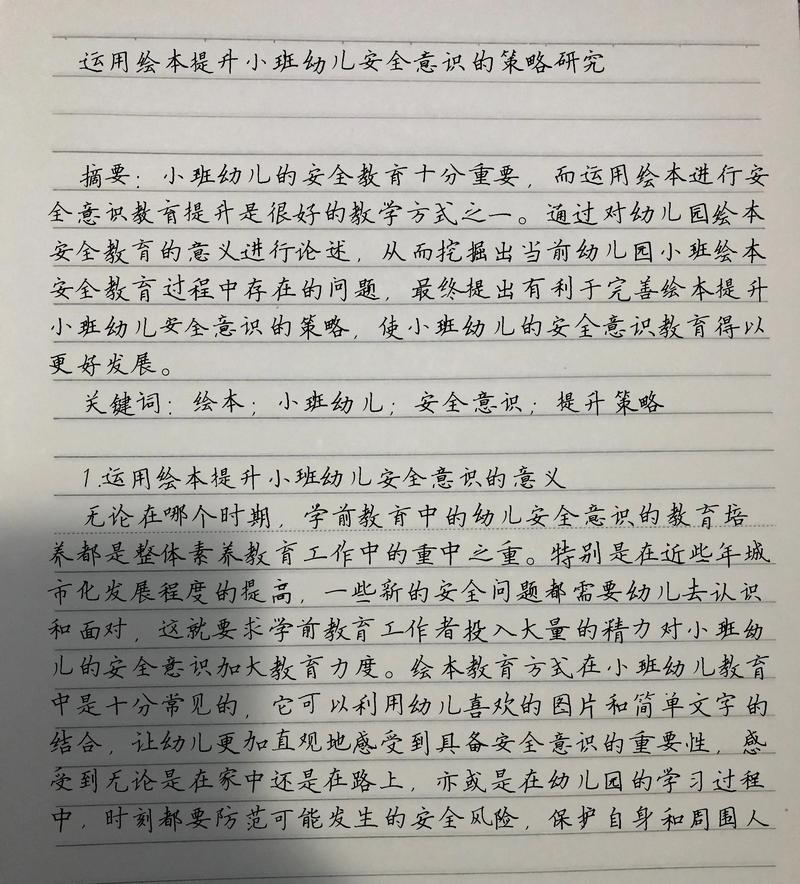 运用绘本提升小班幼儿安全意识的策略研究
摘要：小班幼儿的安全教育十分重要，而运用绘本进行安
全意识教育提升是很好的教学方式之一。通过对幼儿园绘本
安全教育的意义进行论述，从而挖掘出当前幼儿园小班绘本
安全教育过程中存在的问题，最终提出有利于完善绘本提升
小班幼儿安全意识的策略，使小班幼儿的安全意识教育得以
更好发展。
关键词：绘本；小班幼儿；安全意识；提升策略
1.运用绘本提升小班幼儿安全意识的意义
无论在哪个时期，学前教育中的幼儿安全意识的教育培
养都是整体素养教育工作中的重中之重。特别是在近些年城
市化发展程度的提高，一些新的安全问题都需要幼儿去认识
和面对，这就要求学前教育工作者投入大量的精力对小班幼
儿的安全意识加大教育力度。绘本教育方式在小班幼儿教育
中是十分常见的，它可以利用幼儿喜欢的图片和简单文字的
结合，让幼儿更加直观地感受到具备安全意识的重要性，感
受到无论是在家中还是在路上，亦或是在幼儿园的学习过程
中，时刻都要防范可能发生的安全风险，保护自身和周围人